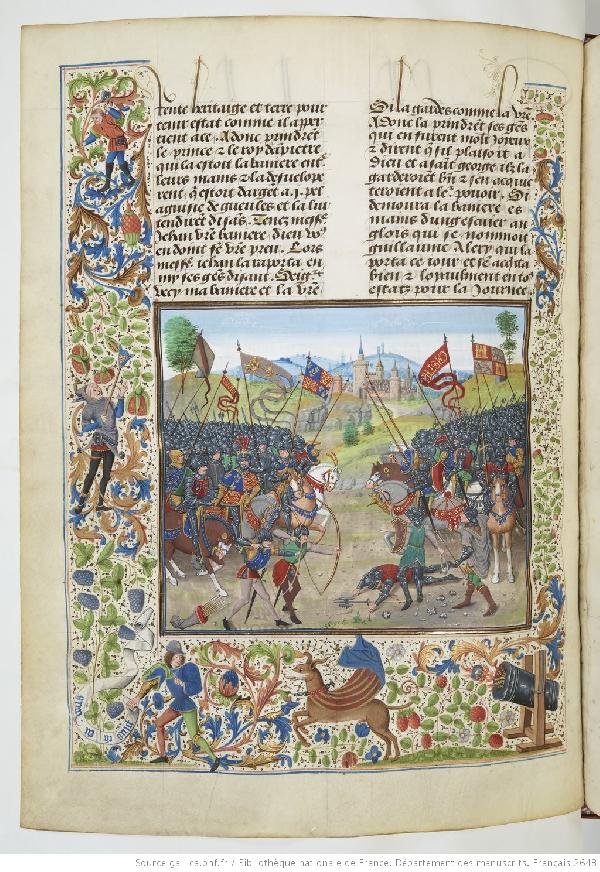 tente heritaige et terre pour
tenir estat comme il apper
tient a ce. Adonc prindrēt
le prince & le roy dā pietre
qui la estoit la baniere ent̄
leurs mains & la desuelope
rent
et la luy
rendirēt disās. Tenez mess̄
Jehan vr̄e baniere dieu vo9
en doint fē vr̄e preu. Lors
mess̄e iehan la raporta en
my ses gēs disant. Seigr̄s
vecy ma baniere et la vr̄e
Si la gardes comme la vr̄e
Adonc la prindrēt ses gēs
qui en furent molt ioieux
& dirent q̄ sil plaisoit a
dieu et a sait george ilz la
garderoiēt biē & sen acqui
teroient a le pouoir. Si
demoura la baniere es
mains dung escuier an
glois que lē nommoit
guillaume Alery qui la
porta ce iour et se acqita
bien & loyaulment en to9
estatz pour la Journee
Source gallica.bnf.fr / Bibliothèque nationale de France. Département des manuscrits. Français 2643